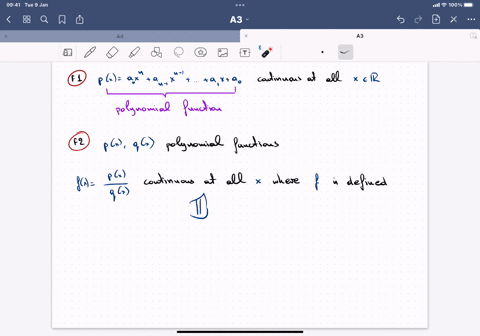 00:41 Tue 9 Jan
A3
A4 A3
F1 p(x) = aₙxⁿ + aₙ₋₁xⁿ⁻¹ + ... + a₁x + a₀ continuous at all x ∈ ℝ
polynomial function
F2 p(x), q(x) polynomial functions
f(x) = p(x)/q(x) continuous at all x where f is defined